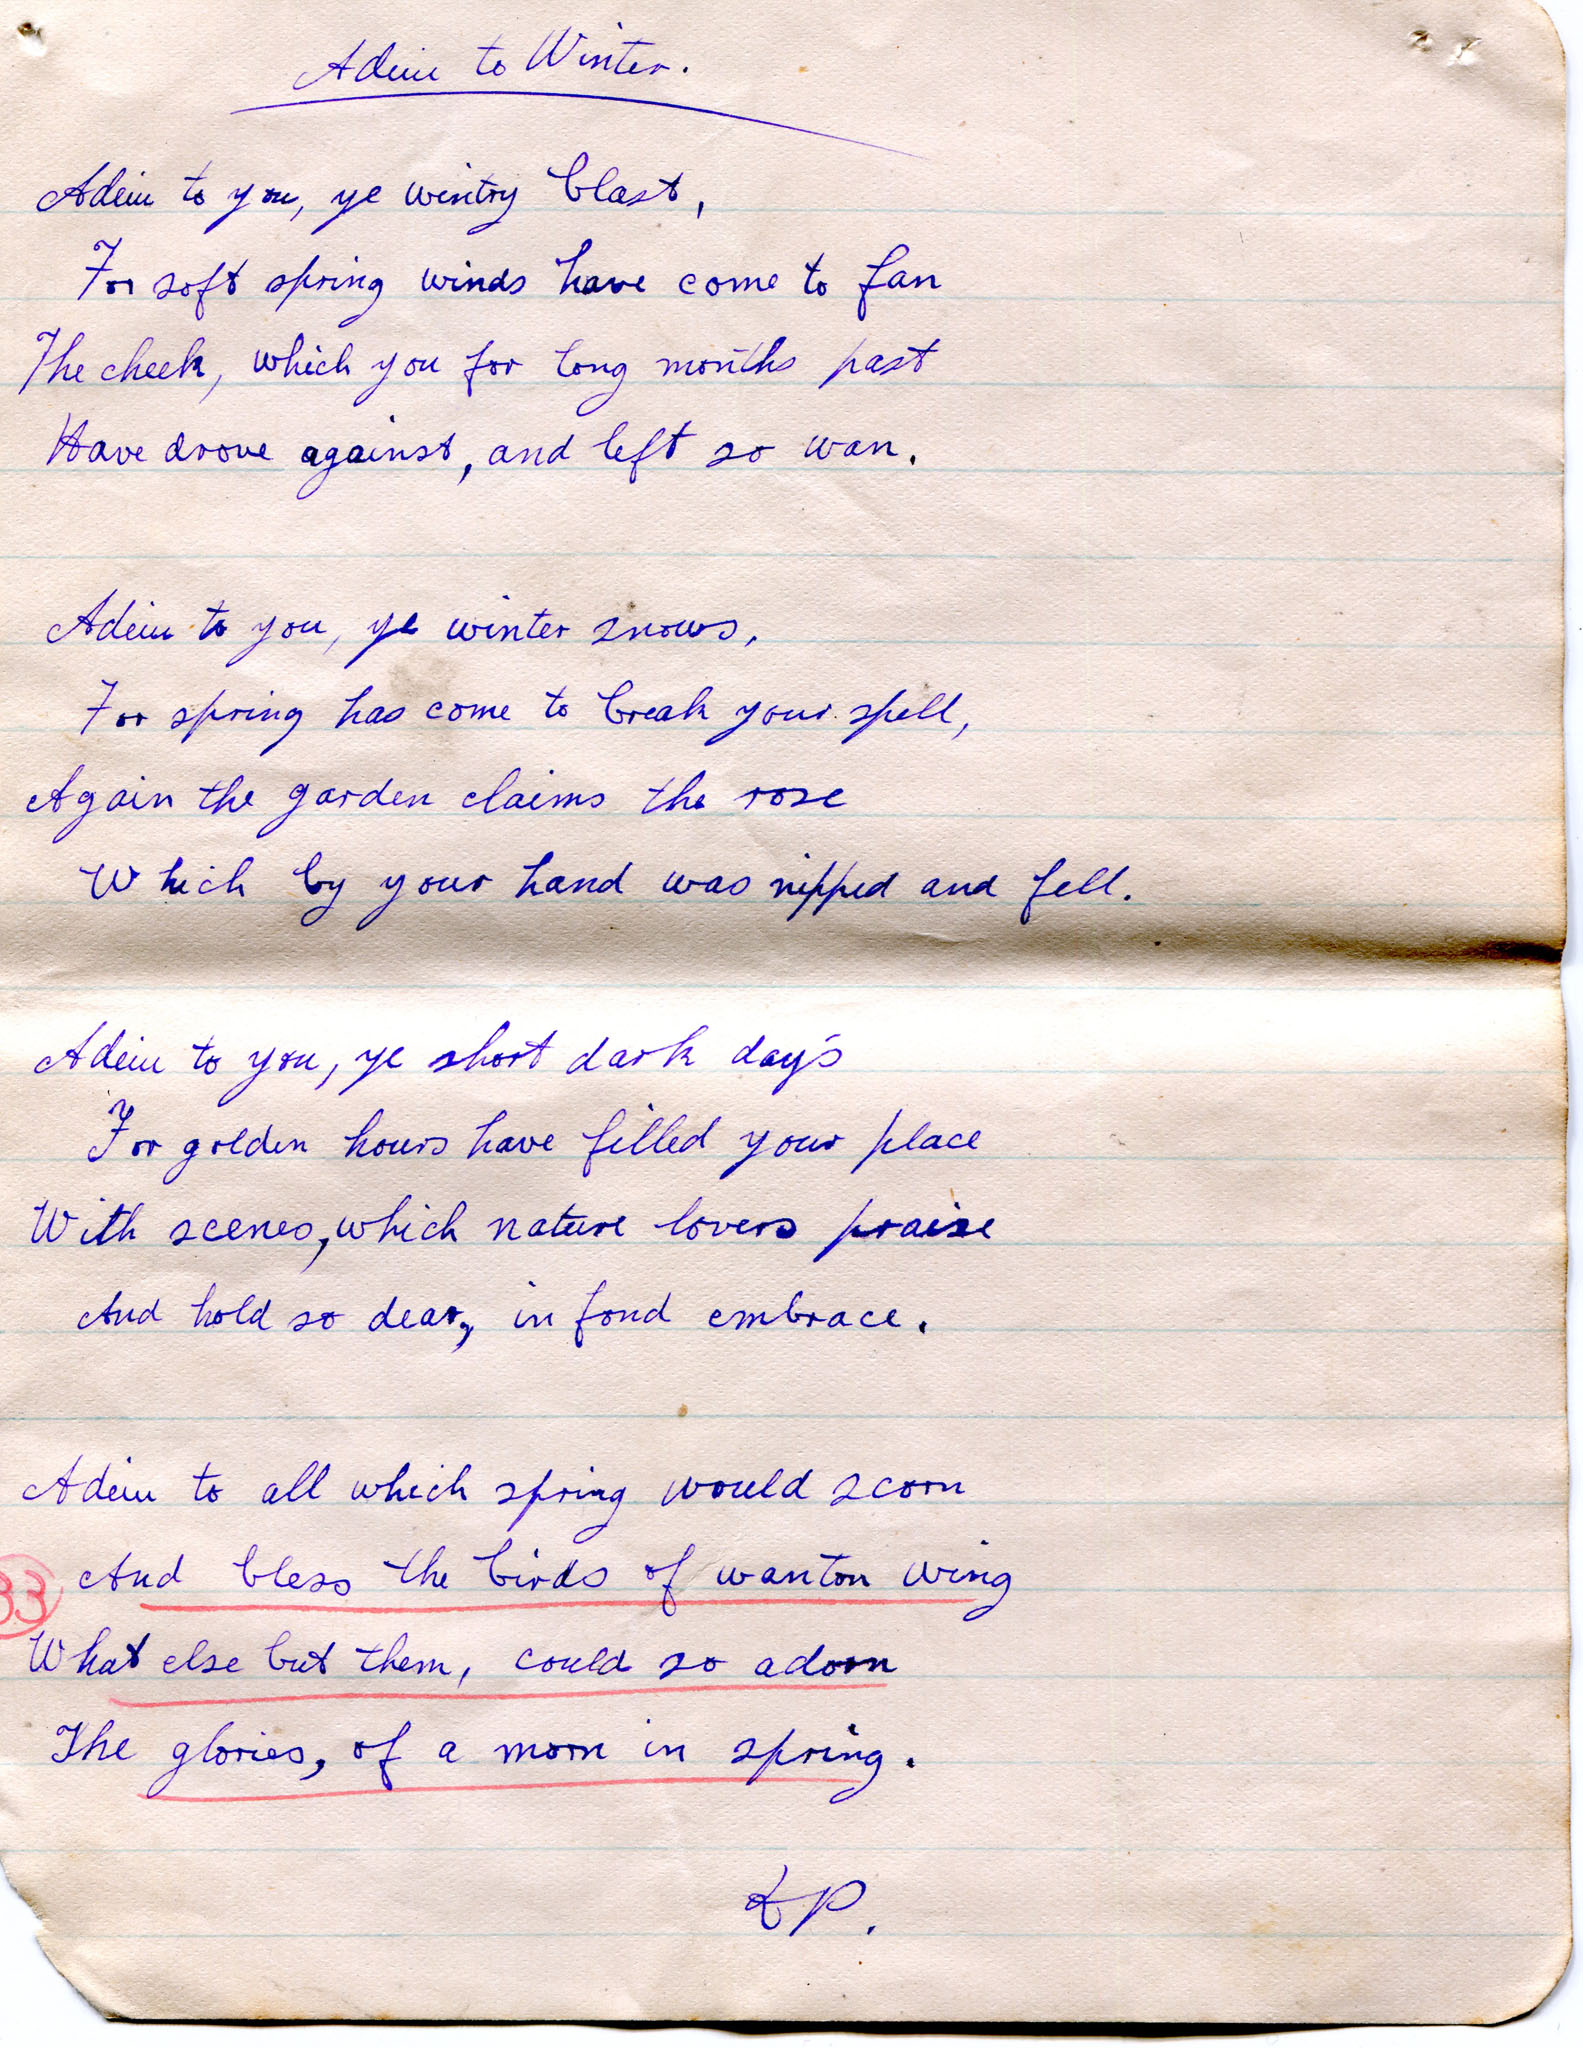 Adeiu to Winter.
Adeiu to you, ye wintry blast,
For soft spring winds have come to fan
The cheek, which you for long months past
Have drove against, and left so wan.
Adeiu to you, ye winter snows,
For spring has come to break your spell,
Again the garden claims the rose
Which by your hand was nipped and fell.
Adeiu to you, ye short dark days
For golden hours have filled your place
With scenes, which nature lovers praise
And hold so dear, in fond embrace.
Adeiu to all which spring would scorn
And bless the birds of wanton wing
33
What else but them, could so adorn
The glories, of a morn in spring.
P.